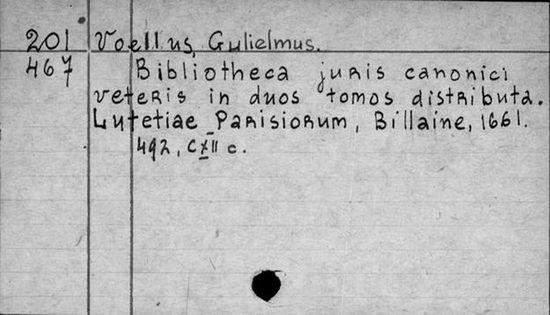 201 Voellus, Gulielmus.
467 Bibliotheca juris canonici
veteris in duos tomos distributa.
Lutetiae Parisiorum, Billaine, 1661.
492, CXII c.